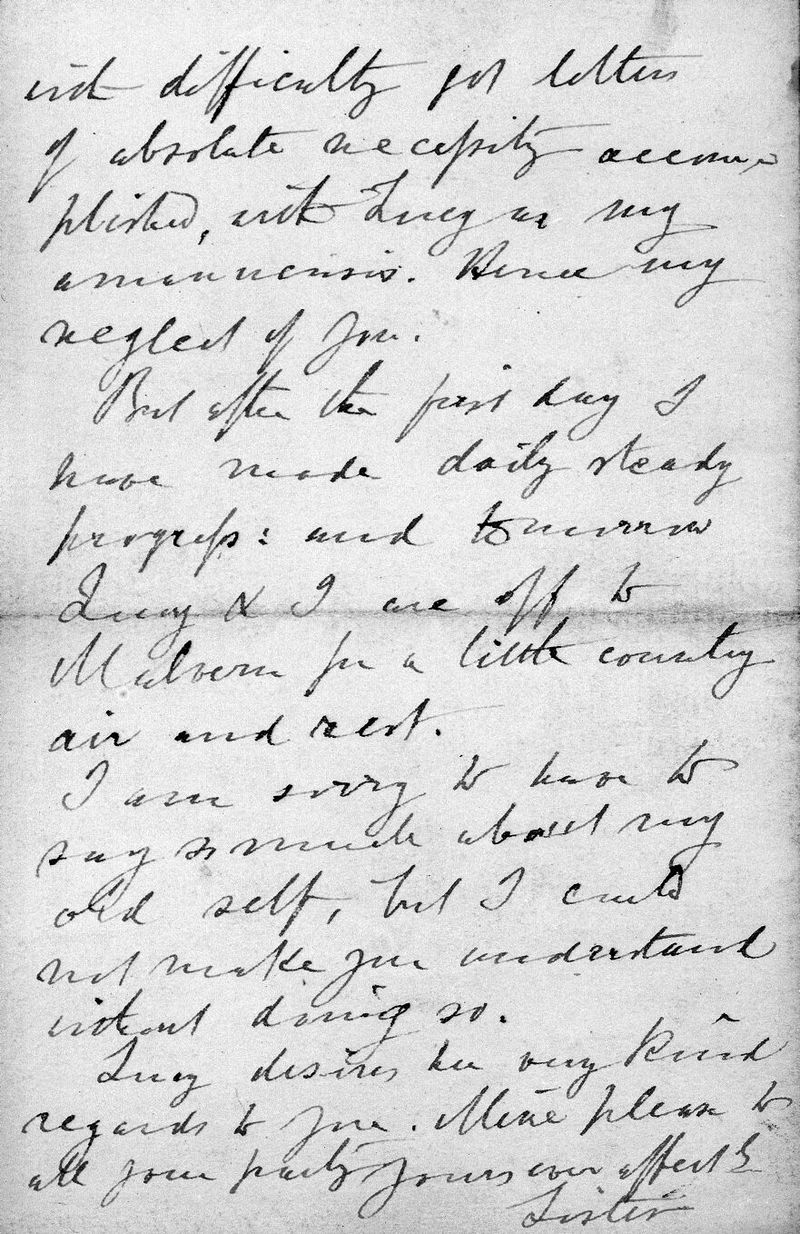 with difficulty got letters
of absolute necessity accom-
plished, with Lucy as my
amanuensis. Hence my
neglect of you.
But after the first day I
have made daily steady
progress: and tomorrow
Lucy & I are off to
Malvern for a little country
air and rest.
I am sorry to have to
say so much about my
old self, but I could
not make you understand
without doing so.
Lucy desires her very kind
regards to you. Mine please to
all your party Yours ever affectly
Lister